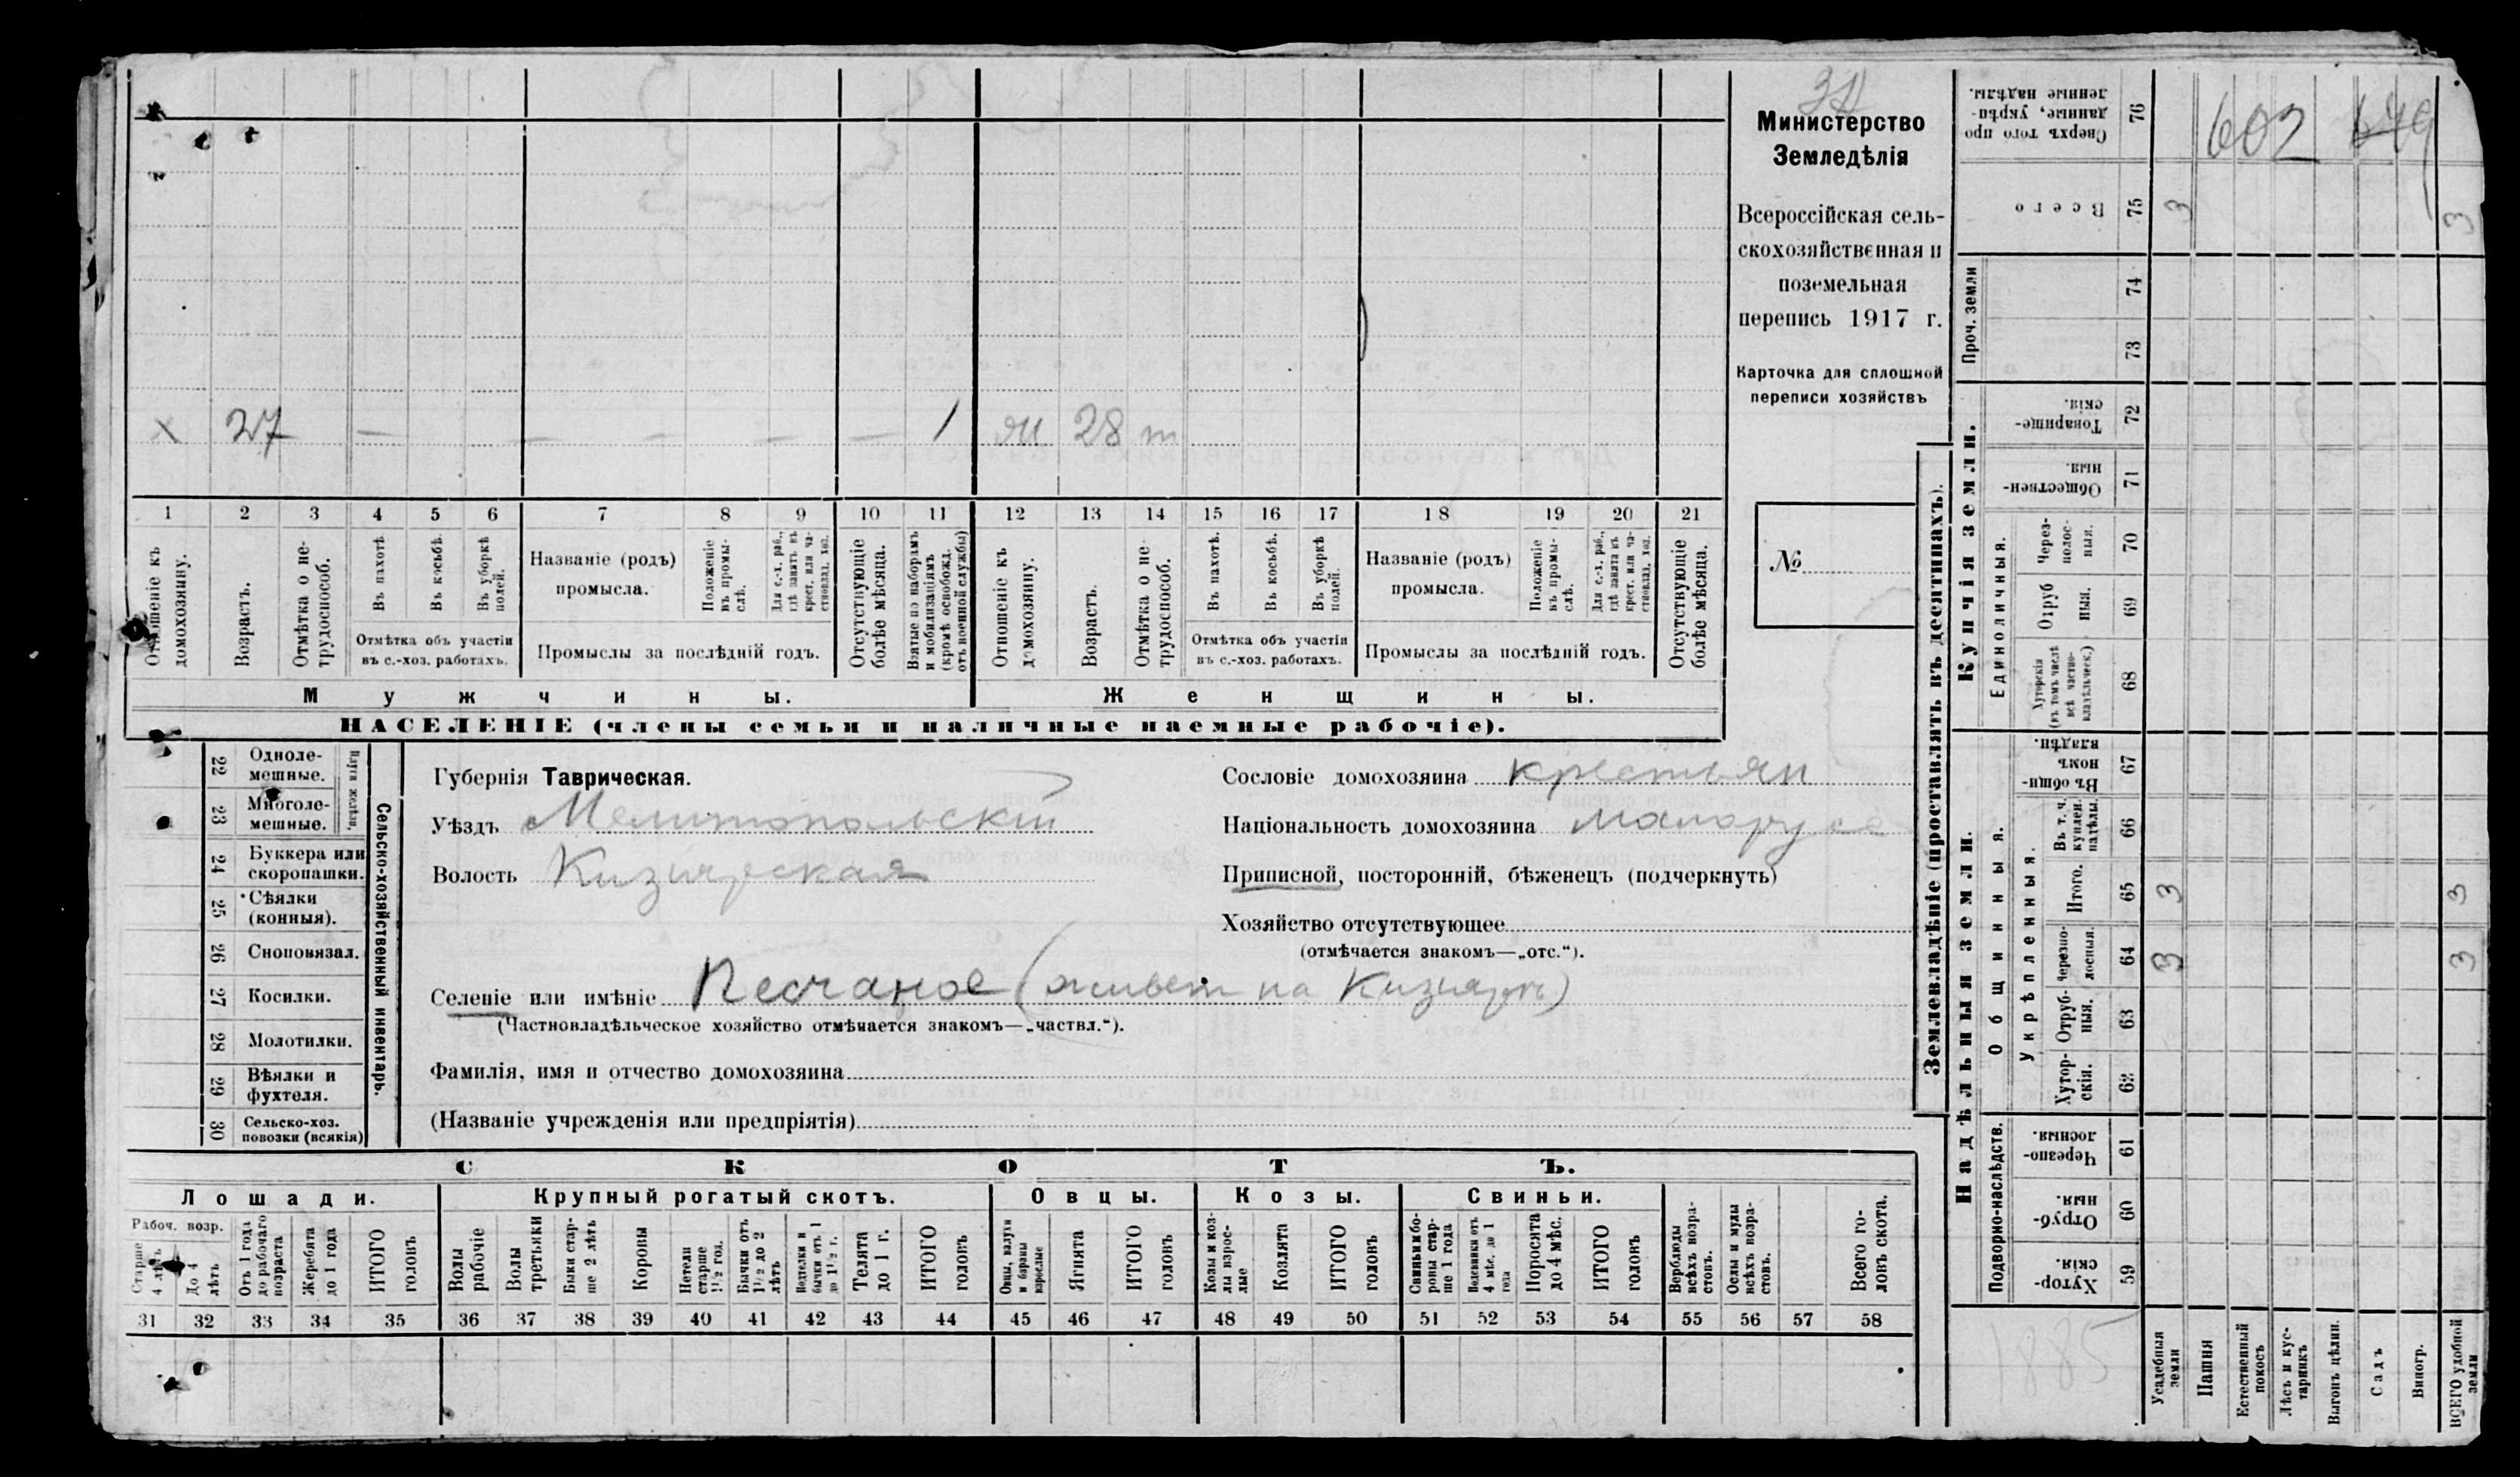 Министерство
Земледѣлія
Всероссійская сель-
скохозяйственная и
поземельная
перепись 1917 г.
Карточка для сплошной
переписи хозяйствъ
№
х 27 — — — — — 1 28 т
1 2 3 4 5 6 7 8 9 10 11 12 13 14 15 16 17 18 19 20 21
Отношеніе къ домохозяину.
Возрастъ.
Отмѣтка о не-трудоспособ.
Въ пахотѣ.
Въ косьбѣ.
Въ уборкѣ полей.
Отмѣтка объ участіи
въ с.-хоз. работахъ.
Названіе (родъ)
промысла.
Положеніе въ промы-слѣ.
Для с.-х. раб., гдѣ занятъ въ крест. или ча-стновлад. хоз.
Промыслы за послѣдній годъ.
Отсутствующіе болѣе мѣсяца.
Взятые по наборамъ и мобилизаціямъ (кромѣ освобожд. отъ военной службы)
Отношеніе къ домохозяину.
Возрастъ.
Отмѣтка о не-трудоспособ.
Въ пахотѣ.
Въ косьбѣ.
Въ уборкѣ полей.
Отмѣтка объ участіи
въ с.-хоз. работахъ.
Названіе (родъ)
промысла.
Положеніе въ промы-слѣ.
Для с.-х. раб., гдѣ занята въ крест. или ча-стновлад. хоз.
Промыслы за послѣдній годъ.
Отсутствующіе болѣе мѣсяца.
Мужчины.
Женщины.
НАСЕЛЕНІЕ (члены семьи и наличные наемные рабочіе).
22 Однолемешные.
23 Многолемешные.
Плуги желѣзн.
24 Буккера или скоропашки.
25 Сѣялки (конныя).
26 Сноповязал.
27 Косилки.
28 Молотилки.
29 Вѣялки и фухтеля.
30 Сельско-хоз. повозки (всякія)
Сельско-хозяйственный инвентарь.
Губернія Таврическая.
Уѣздъ Мелитопольскій
Волость Кизіярская
Селеніе или имѣніе Песчаное (живет на Кизіярѣ)
(Частновладѣльческое хозяйство отмѣчается знакомъ—„частвл.“).
Фамилія, имя и отчество домохозяина
(Названіе учрежденія или предпріятія)
Сословіе домохозяина крестьян
Національность домохозяина малорусс
Приписной, посторонній, бѣженецъ (подчеркнуть)
Хозяйство отсутствующее
(отмѣчается знакомъ—„отс.“).
СКОТЪ.
Лошади. Крупный рогатый скотъ. Овцы. Козы. Свиньи.
Рабоч. возр.
Старше 4 лѣтъ
До 4 лѣтъ
Отъ 1 года до рабочаго возраста
Жеребята до 1 года
ИТОГО головъ
Волы рабочіе
Волы третьяки
Быки стар-ше 2 лѣтъ
Коровы
Нетели старше 1½ год.
Бычки отъ 1½ до 2 лѣтъ
Подтелки и бычки отъ 1 до 1½ г.
Телята до 1 г.
ИТОГО головъ
Овцы, валухи и бараны взрослые
Ягнята
ИТОГО головъ
Козы и коз-лы взрос-лые
Козлята
ИТОГО головъ
Свиньи и бо-ровы стар-ше 1 года
Подсвинки отъ 4 мѣс. до 1 года
Поросята до 4 мѣс.
ИТОГО головъ
Верблюды всѣхъ возра-стовъ.
Ослы и мулы всѣхъ возра-стовъ.
Всего го-ловъ скота.
31 32 33 34 35 36 37 38 39 40 41 42 43 44 45 46 47 48 49 50 51 52 53 54 55 56 57 58
Землевладѣніе (проставлять въ десятинахъ).
Купчія земли.
Надѣльныя земли.
Сверхъ того проданные, укрѣпленные надѣлы. 76
602 649
Всего 75 3 3
Проч. земли 74 73
Товарищескія. 72
Общественныя. 71
Единоличныя.
Черезполосныя. 70
Отрубныя. 69
Хуторскія (въ томъ числѣ всѣ частновладѣльческ.) 68
Общинныя.
Въ общинномъ владѣн. 67
Укрѣпленныя.
Въ т. ч. куплен. надѣлы. 66
Итого. 65 3 3
Черезполосныя. 64 3 3
Отрубныя. 63
Хуторскія. 62
Подворно-наслѣдств.
Черезполосныя. 61
Отрубныя. 60
Хуторскія. 59
1885
Усадебныя земли
Пашня
Естественный покосъ
Лѣсъ и кустарникъ
Выгонъ цѣлин.
Садъ
Виногр.
ВСЕГО удобной земли